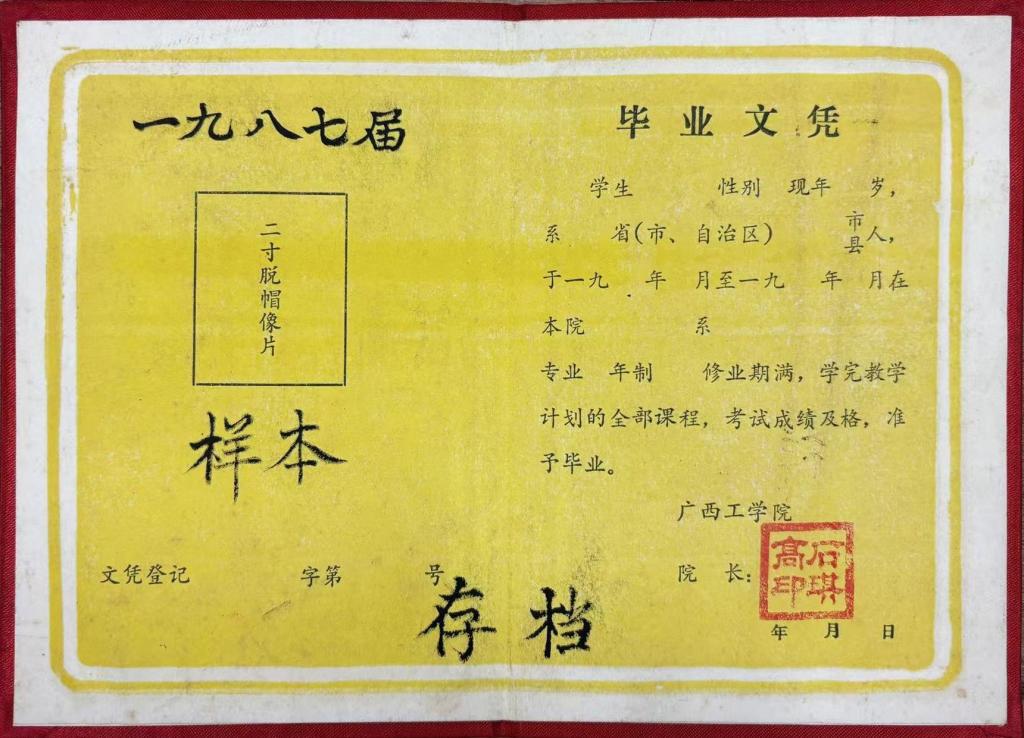 一九八七届
二寸脱帽像片
样本
文凭登记 字第 号
存档
毕业文凭
学生 性别 现年 岁，
系 省(市、自治区) 市县人，
于一九 年 月至一九 年 月在
本院 系
专业 年制 修业期满，学完教学
计划的全部课程，考试成绩及格，准
予毕业。
广西工学院
院 长：
石琪高印
年 月 日